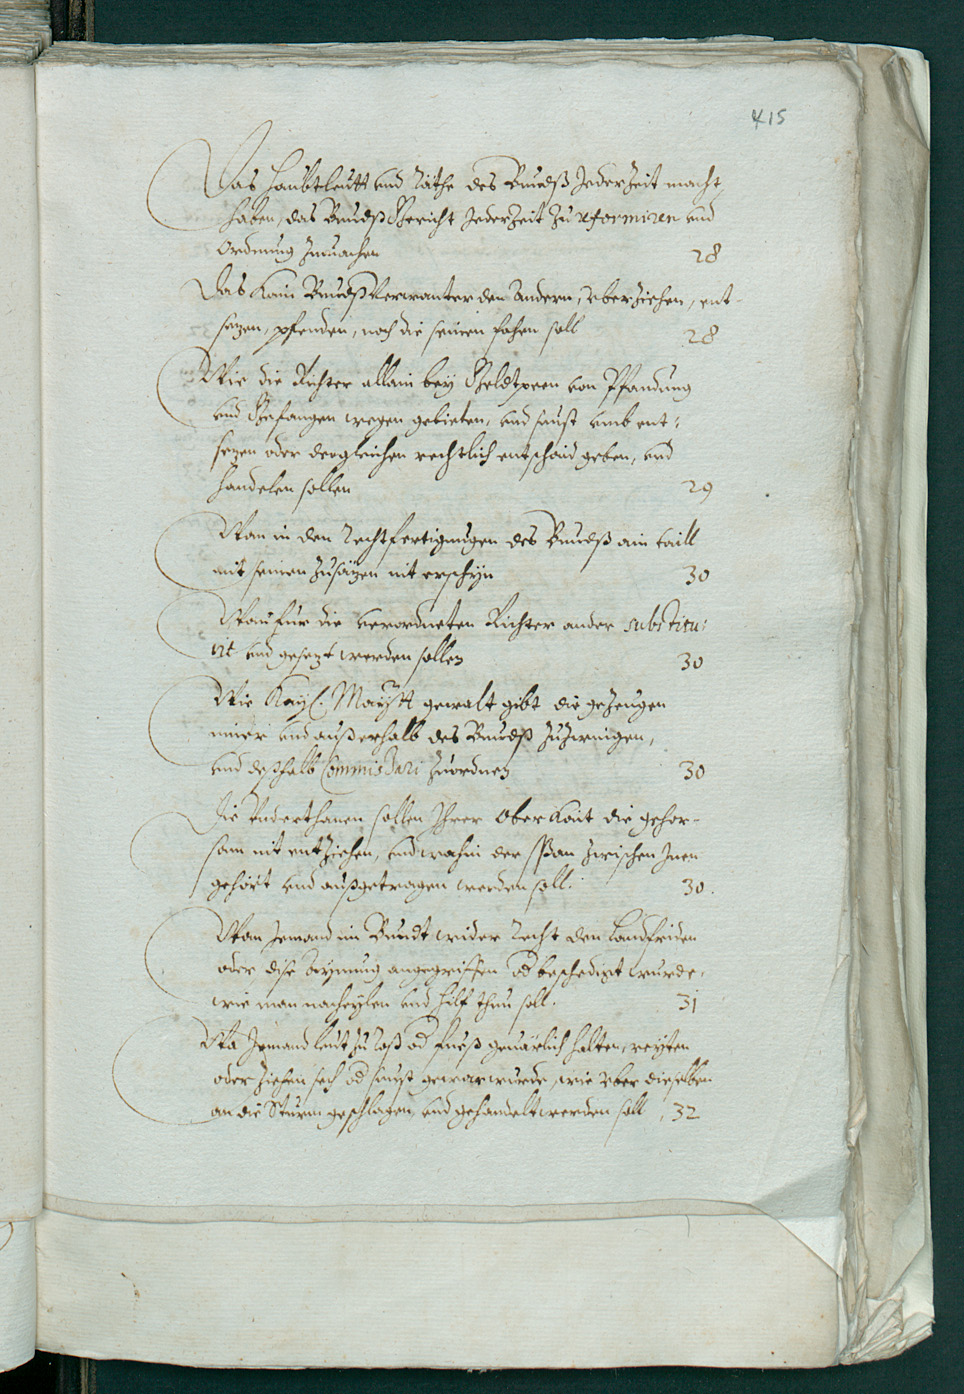 415
Das Haubtleutt und Räthe des Bundß Jederzeit macht
haben, das Bundß Gericht Jederzeit zu reformiren und
Ordnung zumachen 28
Das Kain Bundß Verwanter den Andern, Uberziehen, ent-
sezen, pfenden, noch die seinen fahen soll 28
Wie die Richter allain bey Geldtpeen von Pfandung
und Gefangen wegen gebieten, und sunst umb ent-
sezen oder dergleichen rechtlich entschaid geben, und
handelen sollen 29
Wan in den Rechtfertigungen des Bundß ain taill
mit seinen Zusäzen nit erschyn 30
Wan für die verordneten Richter ander substitu-
irt und gesezt werden sollen 30
Wie Kayl. Maystt gewalt gibt die gezeugen
inner und ausserhalb des Bundß zuzwingen,
und deßhalb Commissari zuordnen 30
Die Underthanen sollen Ihrer Oberkait die gehor-
sam nit entziehen, und wahin der Span zwischen Inen
gehört und außgetragen werden soll. 30.
Wan Jemand im Bundt wider Recht den Landfriden
oder dise Aynung angegriffen od beschedigt wurde,
wie man nacheylen und hilf thun soll. 31
Wa Jemand leut zu Roß od Fueß geuärlich halten, reyten
oder ziehen sech od sunst gewar wurde, wie Uber dieselben
an die Sturm geschlagen, und gehandelt werden soll 32